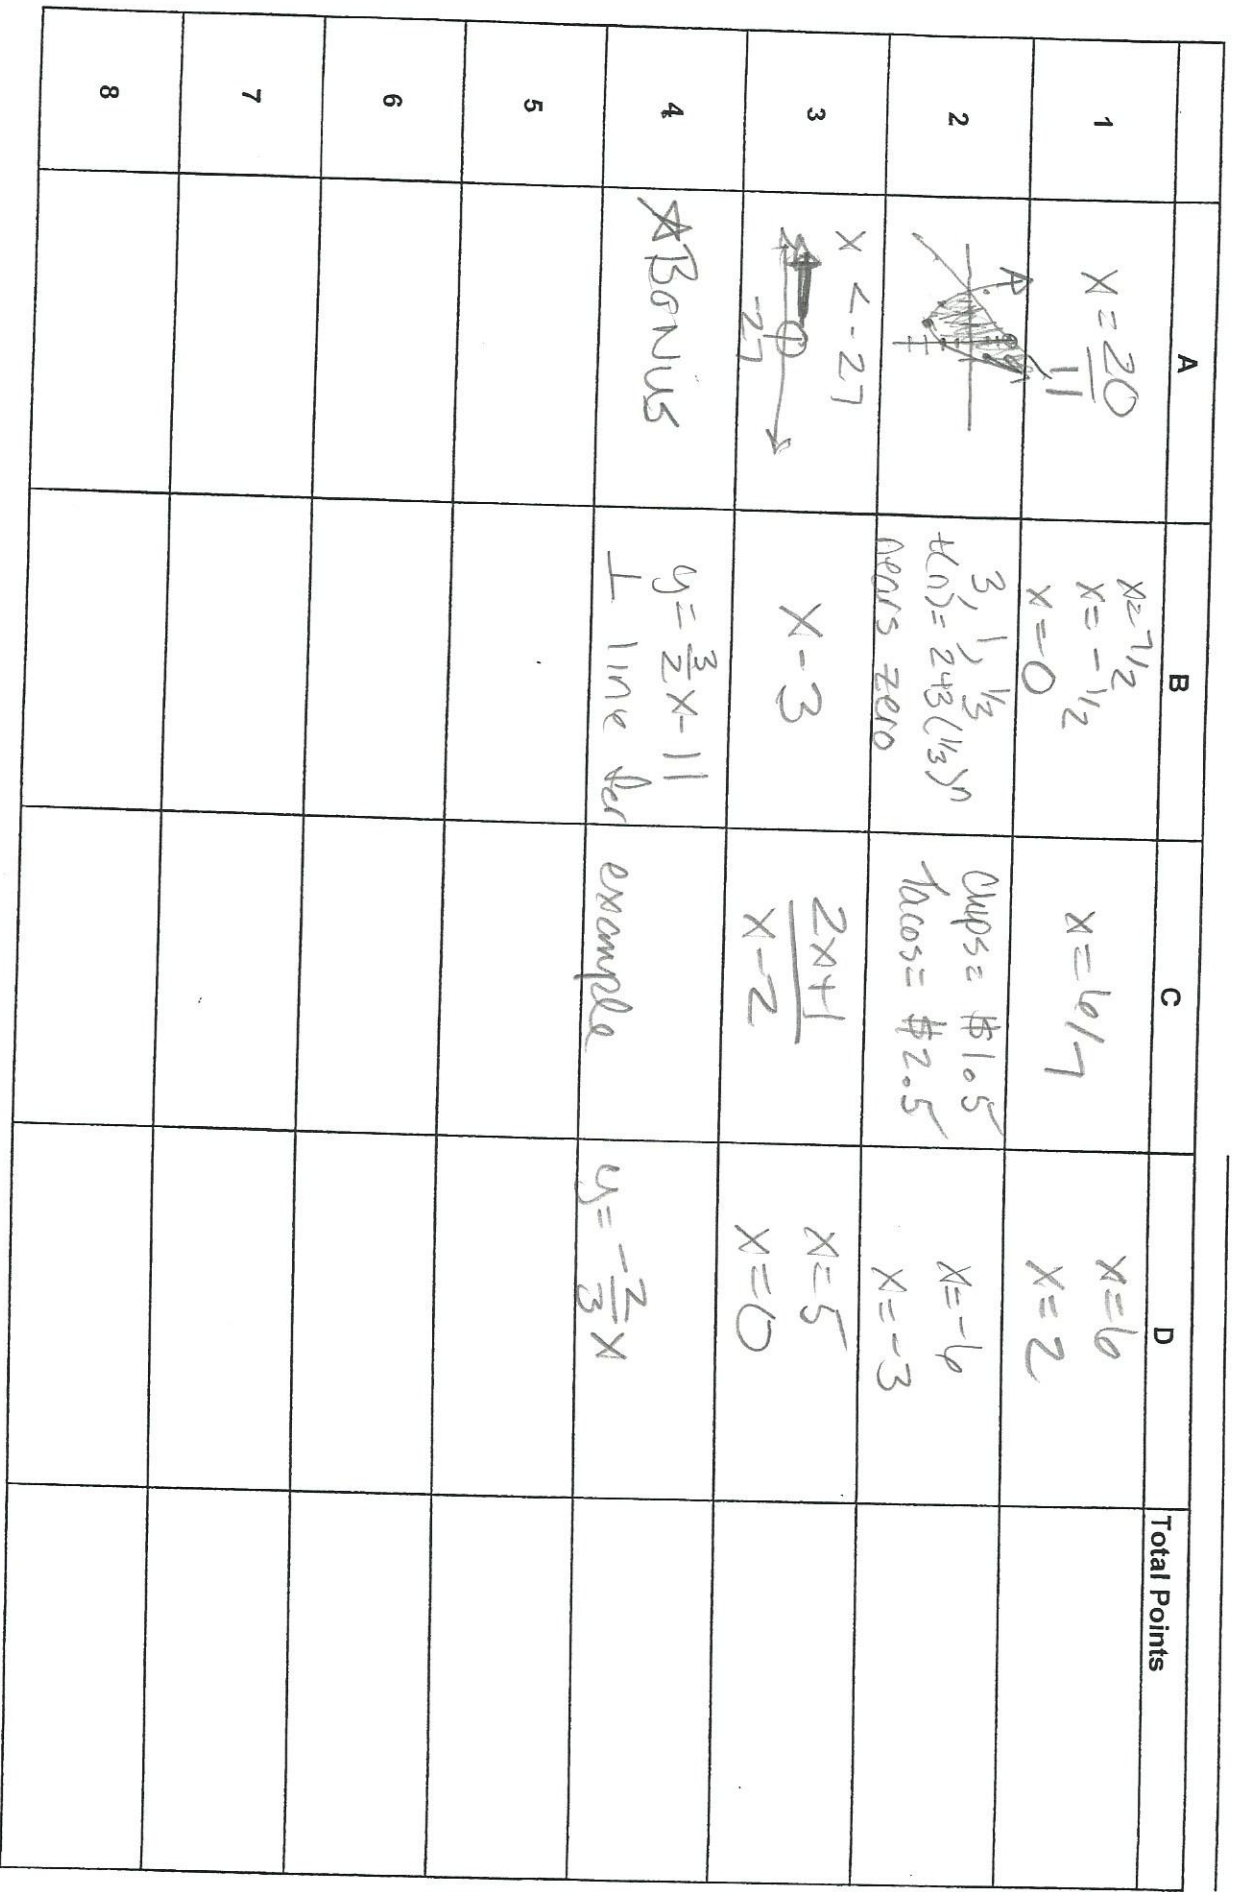 A B C D Total Points
1
x = 20/11
x = 7/2
x = -1/2
x = 0
x = 6/7
x = 6
x = 2
2
3, 1, 1/3
t(n) = 243(1/3)^n
nears zero
Chips = $1.5
Tacos = $2.5
x = -6
x = -3
3
x < -27
-27
x - 3
2x+1
x-2
x = 5
x = 0
4
☆BONUS
y = 3/2 x - 11
⊥ line for example
y = -2/3 x
5
6
7
8